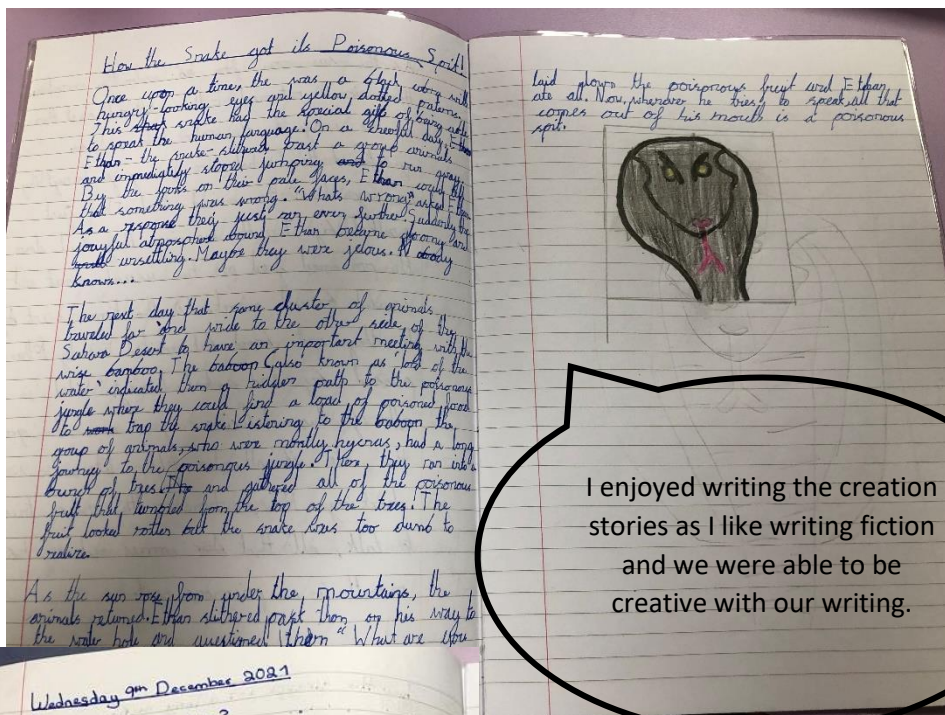 How the Snake got its Poisonous Spit!
Once upon a time, the was a black cobra with
hungry-looking eyes and yellow, dotted paterns.
This snake had the special gift of being able
to speak the human language. On a cheerful day,
Ethan - the snake - slithered past a group animals
and immediatly stoped jumping to run away.
By the looks on their pale faces, Ethan could tell
that something was wrong. "Whats wrong" asked Ethan.
As a response they just ran even further. Suddenly the
joayful atmosphere around Ethan became gloomy and
unsettling. Maybe they were jelous. Nobody
knows...
The next day that same cluster of animals
traveled far and wide to the other side of the
Sahara Desert to have an important meeting with the
wise bamboo. The baboon (also known as 'lord of the
water' indicated them a hidden path to the poisonous
jungle where they could find a load of poisoned food
to trap the snake. Listening to the baboon the
group of animals, who were montly hyenas, had a long
journey to the poisonous jungle. There, they ran into a
bunch of trees. and gathered all of the poisonous
fruit that from the top of the trees. The
fruit looked rotten but the snake was too dumb to
realize.
As the sun rose from under the mountains, the
animals returned. Ethan slithered past them on his way to
the water hole and questioned them "What are you
laid down the poisonous fruit and Ethan
ate all. Now, whenever he tries to speak, all that
comes out of his mouth is a poisonous
spit.
I enjoyed writing the creation
stories as I like writing fiction
and we were able to be
creative with our writing.
Wednesday 9th December 2021